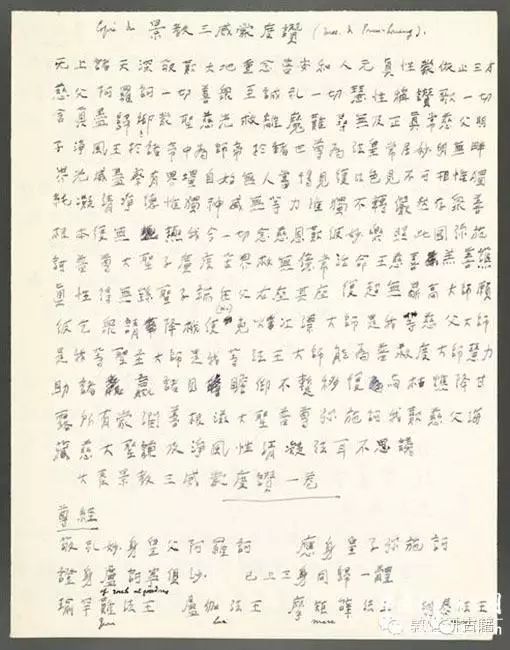 Copie du 景教三威蒙度讃 (mss. de
无上諸天深敬歎大地重念普安和人元真性蒙依止三才
慈父阿羅訶一切善衆至誠礼一切慧性稱讃歌一切
含真盡歸仰蒙聖慈光救離魔難尋無及正真常慈父明
子淨風王於諸帝中為師帝於諸世尊為法皇常居妙明無畔
界光威盡察有界壃自始無人嘗得見復以色見不可相惟獨
純凝清淨德惟獨神威無等力惟獨不轉儼然存衆善
根本復無極我今一切念慈恩歎彼妙樂照此國弥施
訶普尊大聖子廣度苦界救無億常活命王慈喜羔
真性得無聖子端任父右座其座復超無最高大師願
彼乞衆請降栰使免火江漂大師是我等慈父大師
是我等聖主大師是我等法王大師能為普救度大師慧力
助諸羸諸目瞻仰不蹔移復與枯燋降甘
露所有蒙潤善根滋大聖普尊弥施訶我歎慈父海
藏慈大聖謙及淨風性清凝法耳不思議
大秦景教三威蒙度讃一卷
尊経
敬礼妙身皇父阿羅訶 應身皇子弥施訶
證身盧訶寧俱沙 已上三身同歸一體
瑜罕難法王 盧伽法王 摩矩辭法王 法王
Luc